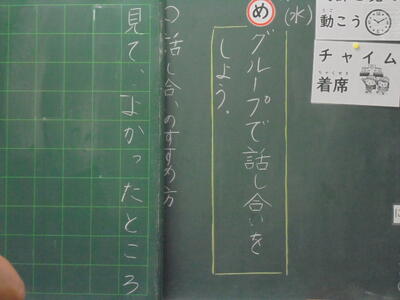 (水)
め
グループで話し合いを
しよう。
○話し合いのすすめ方
見て、よかったところ
動こう
チャイム
着席